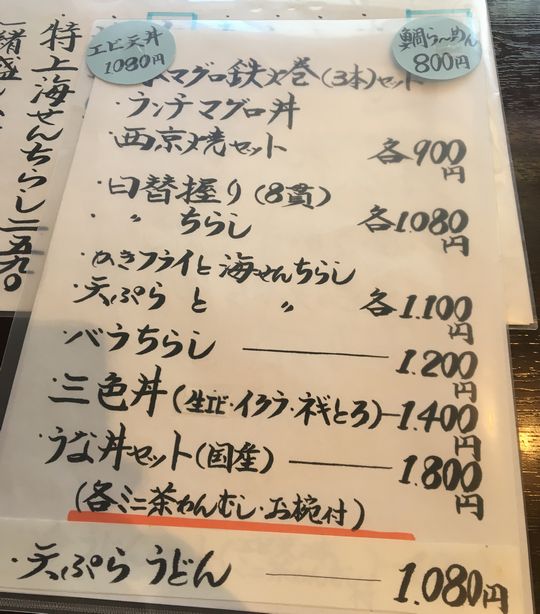 エビ天丼
1080円
真鯛らーめん
800円
本マグロ鉄火巻(3本)セット
・ランチマグロ丼
西京焼セット 各900円
・日替握り(8貫)
・〃 ちらし 各1.080円
・かきフライと海せんちらし
・天ぷらと 〃 各1.100円
・バラちらし 1.200円
・三色丼(生エビ・イクラ・ネギとろ) 1.400円
・うな丼セット(国産) 1.800円
(各ミニ茶わんむし・お椀付)
・天ぷらうどん 1.080円
特上海せんちらし二五九〇